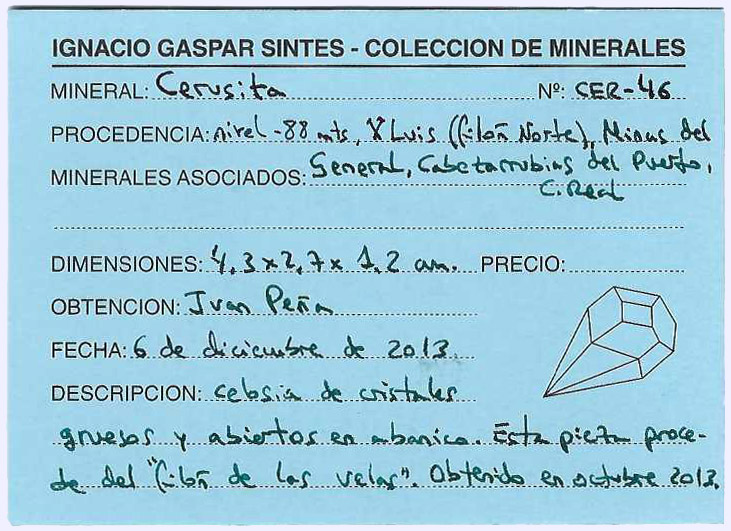 IGNACIO GASPAR SINTES - COLECCION DE MINERALES
MINERAL: Cerusita Nº: CER-46
PROCEDENCIA: nivel -88 mts, Luis (filón Norte), Minas del
MINERALES ASOCIADOS: General, Cabezarrubias del Puerto,
C. Real
DIMENSIONES: 4,3 x 2,7 x 1,2 cm. PRECIO:
OBTENCION: Ivan Peña
FECHA: 6 de diciembre de 2013.
DESCRIPCION: celosia de cristales
gruesos y abiertos en abanico. Esta pieza proce-
de del "filón de las velas". Obtenido en octubre 2013.